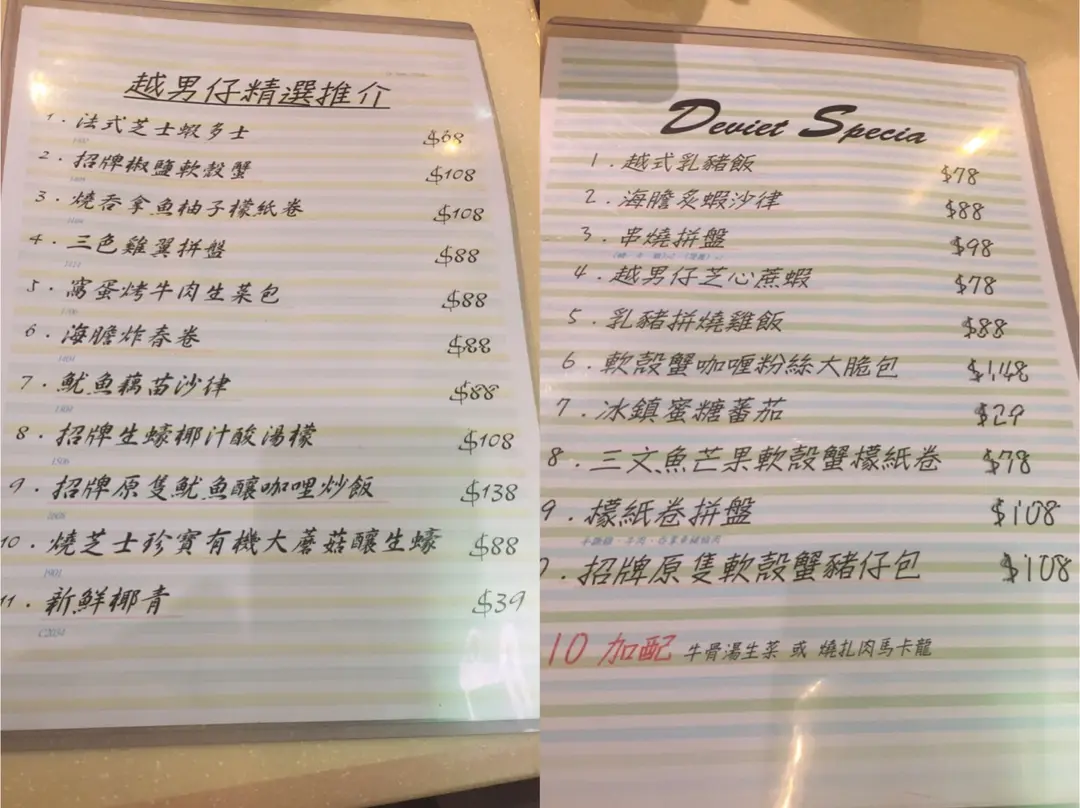 越男仔精選推介
1．法式芝士蝦多士 $68
2．招牌椒鹽軟殼蟹 $108
3．燒吞拿魚柚子檬紙卷 $108
4．三色雞翼拼盤 $88
5．窩蛋烤牛肉生菜包 $88
6．海膽炸春卷 $88
7．魷魚藕苗沙律 $88
8．招牌生蠔椰汁酸湯檬 $108
1506
9．招牌原隻魷魚釀咖哩炒飯 $138
10．燒芝士珍寶有機大蘑菇釀生蠔 $88
1901
11．新鮮椰青 $39
C2034
Deviet Specia
1．越式乳豬飯 $78
2．海膽炙蝦沙律 $88
3．串燒拼盤 $98
4．越男仔芝心蔗蝦 $78
5．乳豬拼燒雞飯 $88
6．軟殼蟹咖喱粉絲大脆包 $148
7．冰鎮蜜糖蕃茄 $29
8．三文魚芒果軟殼蟹檬紙卷 $78
9．檬紙卷拼盤 $108
．招牌原隻軟殼蟹豬仔包 $108
10 加配 牛骨湯生菜 或 燒扎肉馬卡龍